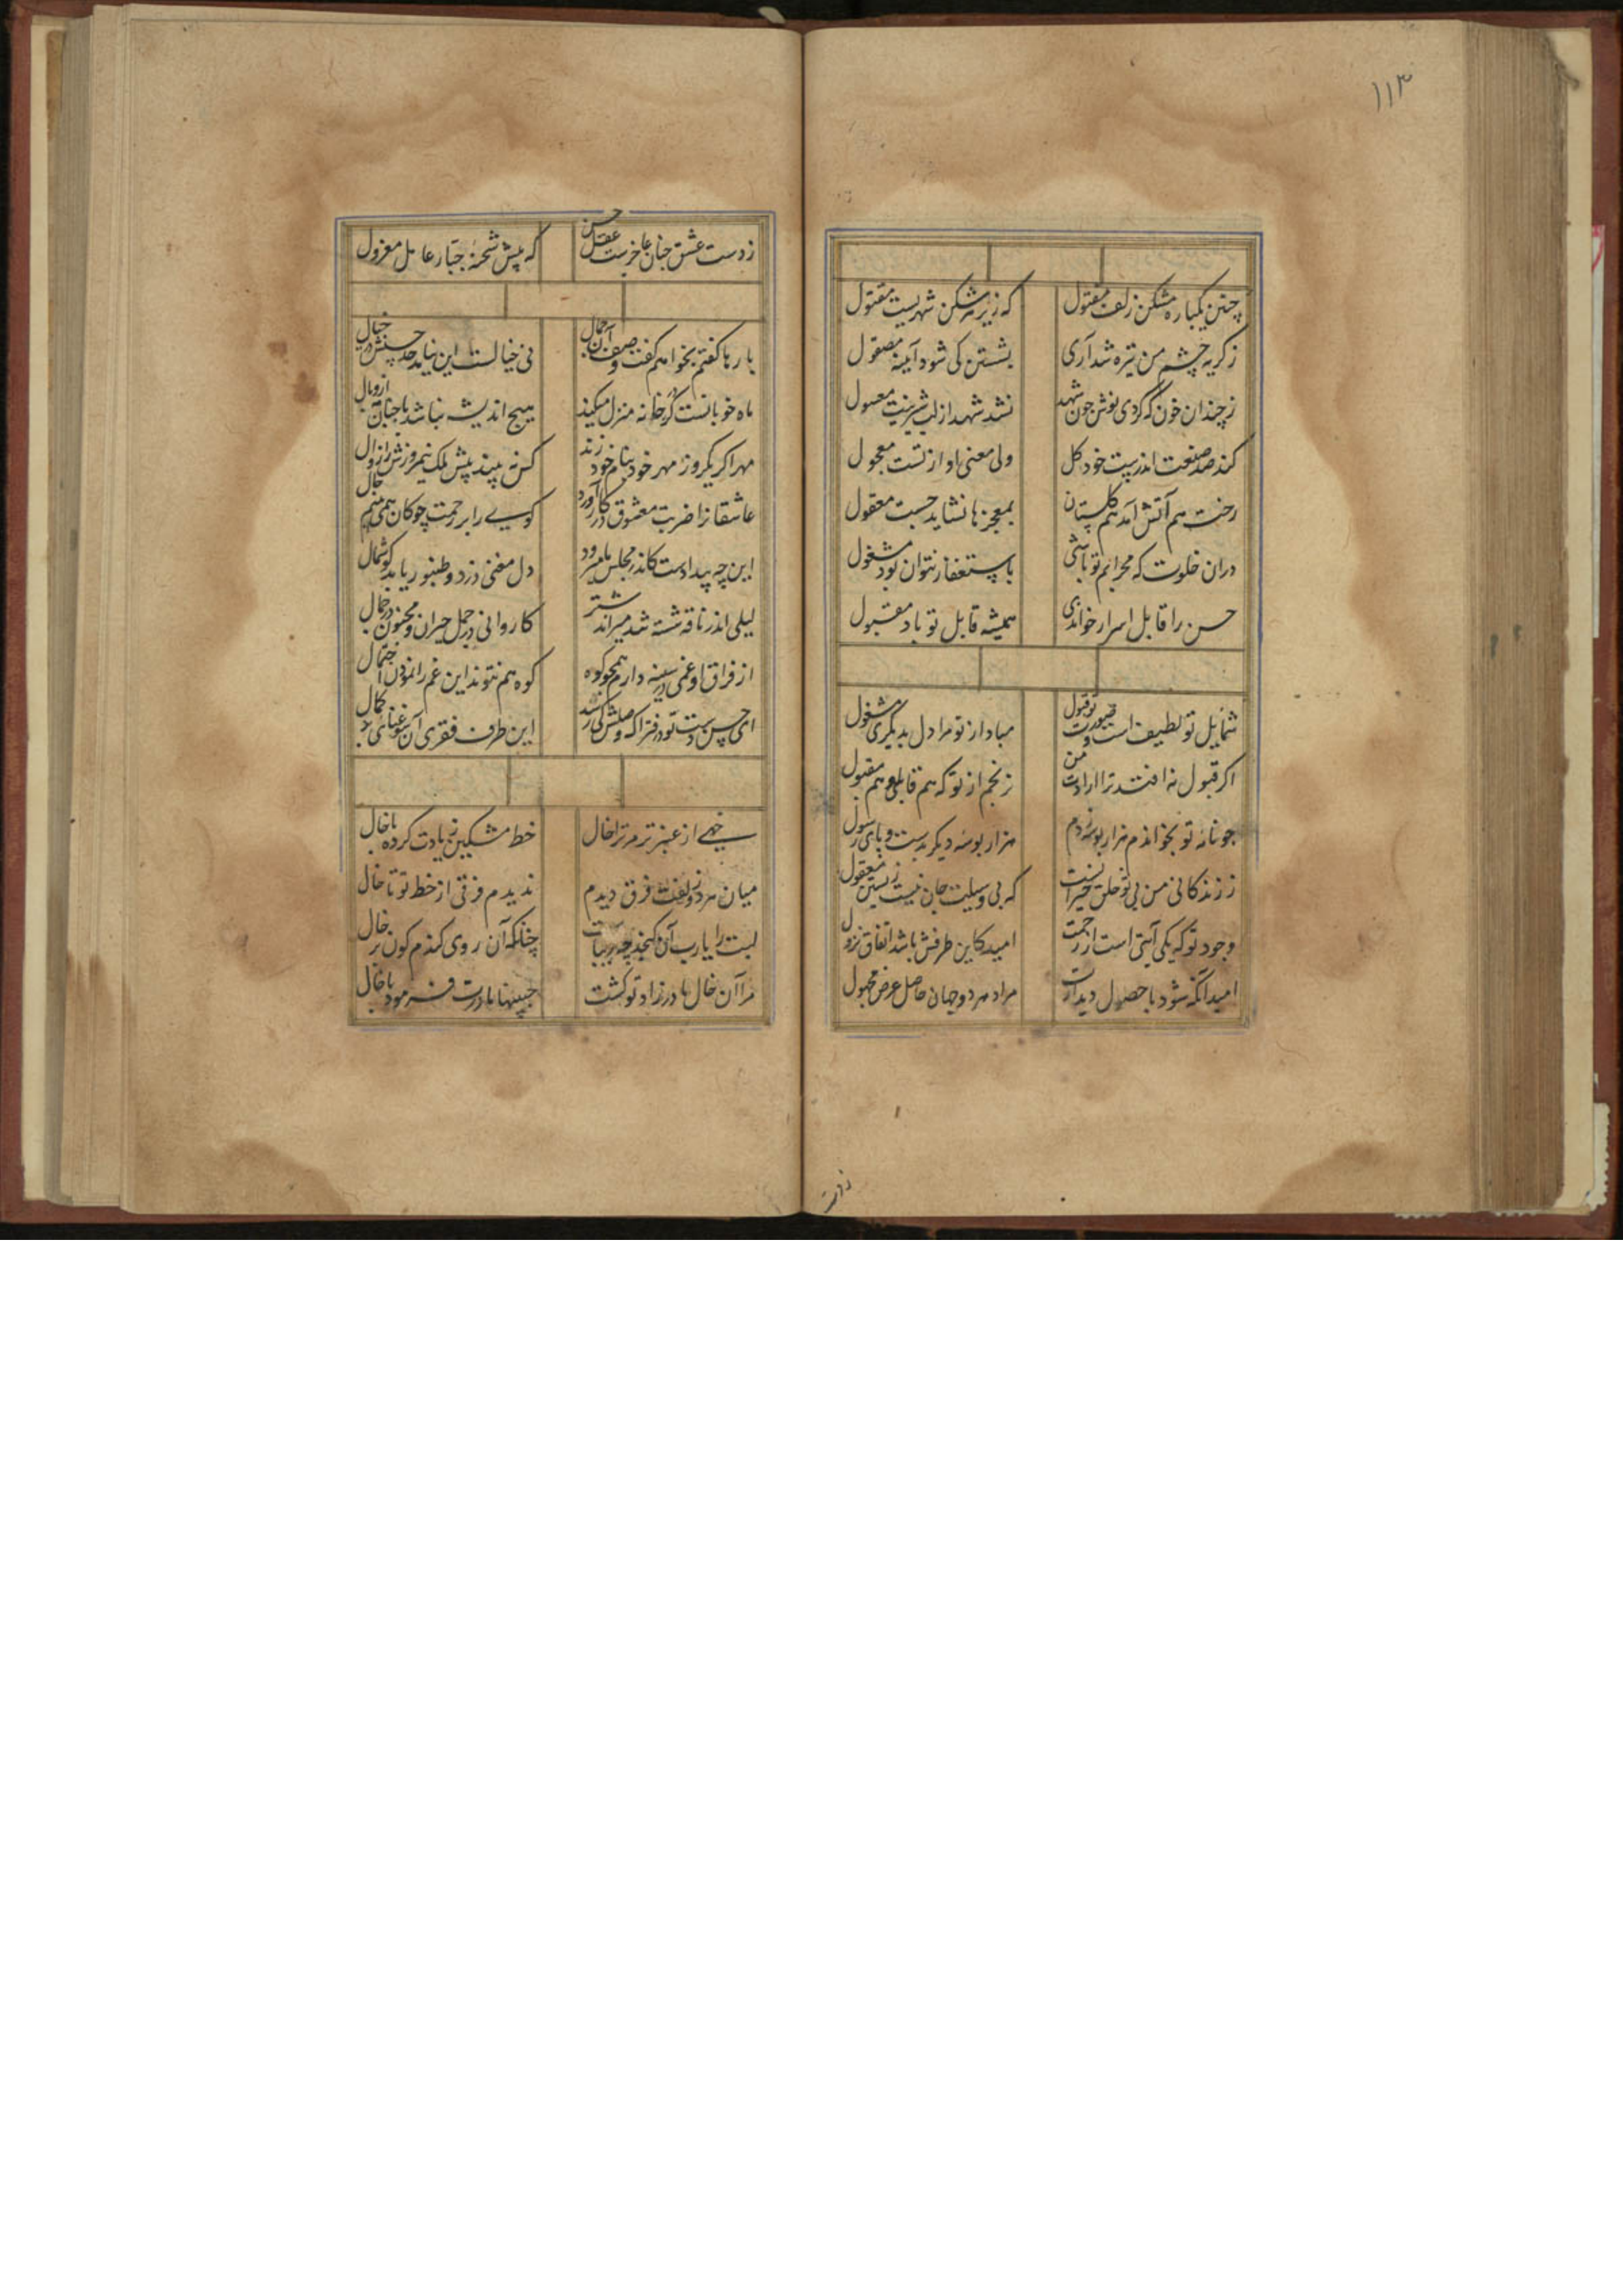 ۱۱۳
چنین یکباره مشکن زلف مفتول
که زیر هر شکن شهریست مقتول
ز گریه چشم من تیره شد آری
بشستن کی شود آیینه مصقول
ز چندان خون که کردی نوش چون شهد
نشد شهد از لب شیرینت معسول
کند صد صنعت اندر پیت خود کل
ولی معنی او از تست معجول
رخت هم آتش آمد هم گلستان
بمعجزها نشاید جست معقول
دران خلوت که محرابم تو باشی
باستغفار نتوان بود مشغول
حسن را قابل اسرار خواندی
همیشه قابل تو باد مقبول
شمایل تو لطیف است و صورت تو قبول
مباد از تو مرا دل بدیگری مشغول
اگر قبول نه افتد ترا ارادت من
نرنجم از تو که هم قابلی و هم مقبول
چو نامه تو بخواندم هزار بوسه زدم
هزار بوسه دیگر بدست و پای رسول
ز زندگانی من بی تو خلق حیرانست
که بی وسیلت جان نیست زیستن معقول
وجود تو که یکی آیتی است از رحمت
امید کاین طرفش باشد اتفاق نزول
امید آنکه شود با حصول دیدارت
مراد هر دو جهان حاصل غرض محمول
زدست
زدست عشق چنان عاجزست عقل حسن
که پیش شحنه جبار عامل معزول
بارها گفتم بخواهم گفت وصف آن جمال
نی خیالست این نیاید حد حسنش در خیال
ماه خوبانست گر در خانه منزل میکند
هیچ اندیشه نباشد با چنان از وبال
مهر اگر یکروز مهر خود بنام خود زند
کس نه بیند پیش ملک نیمروزش را زوال
عاشقانرا ضربت معشوق در کار آورد
گویی را بر زحمت چوگان همی بینم حال
این چه بیدادست کاندر مجلس ما میرود
دل مغنی دزد و طنبور یابد گوشمال
لیلی اندر ناقه نشسته شد میراند شتر
کاروانی در جمل حیران و مجنون در جمال
از فراق او غمی در سینه دارم همچو کوه
کوه هم نتواند این غم را نمودن احتمال
ای حسن دست تو در فتراک وصلش کی رسد
این طرف فقری آن سو غنای بر کمال
زهی از عنبر تر مر ترا خال
خط مشکین زیادت کرده با خال
میان هر دو زلفت فرق دیدم
ندیدم فرقی از خط تو تا خال
لبت را یارب آن
چنانکه آن روی گندم گون بر خال
مرا آن خال مادر زاد تو کشت
حبیبها مادرت فرمود با خال